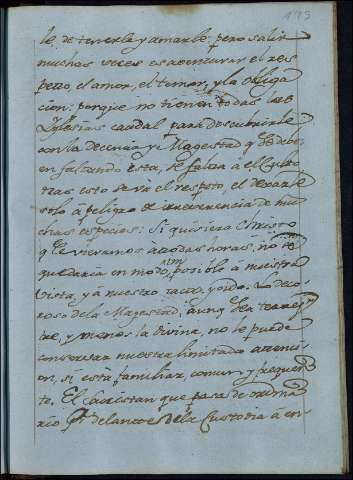 le, de tenerle, y amarle, pero salir
muchas veces es aventurar el res
peto, el amor, el temor, y la obliga
cion: porque no tienen todas las
Iglesias caudal para descubrirle
con la decencia y Magestad q̃ se debe
en faltando esta, se falta à el Culto
tras esto se va el respeto, el dexarle
solo à peligro de irreverencia de mu
chas especies: Si quisiera Christo
q̃ le vieramos à todas horas, no se
quedaria en modo, posible à nuestra
vista, y à nuestro tacto, y oido. Lo deco
roso de la Magestad, aunq̃ sea terres
tre, y menos la divina, no le puede
conservar nuestra limitada atenci
on, si està familiar, comun, y frequen
te. El Sacristan que pasa de ordina
rio por delante de la Custodia à en-